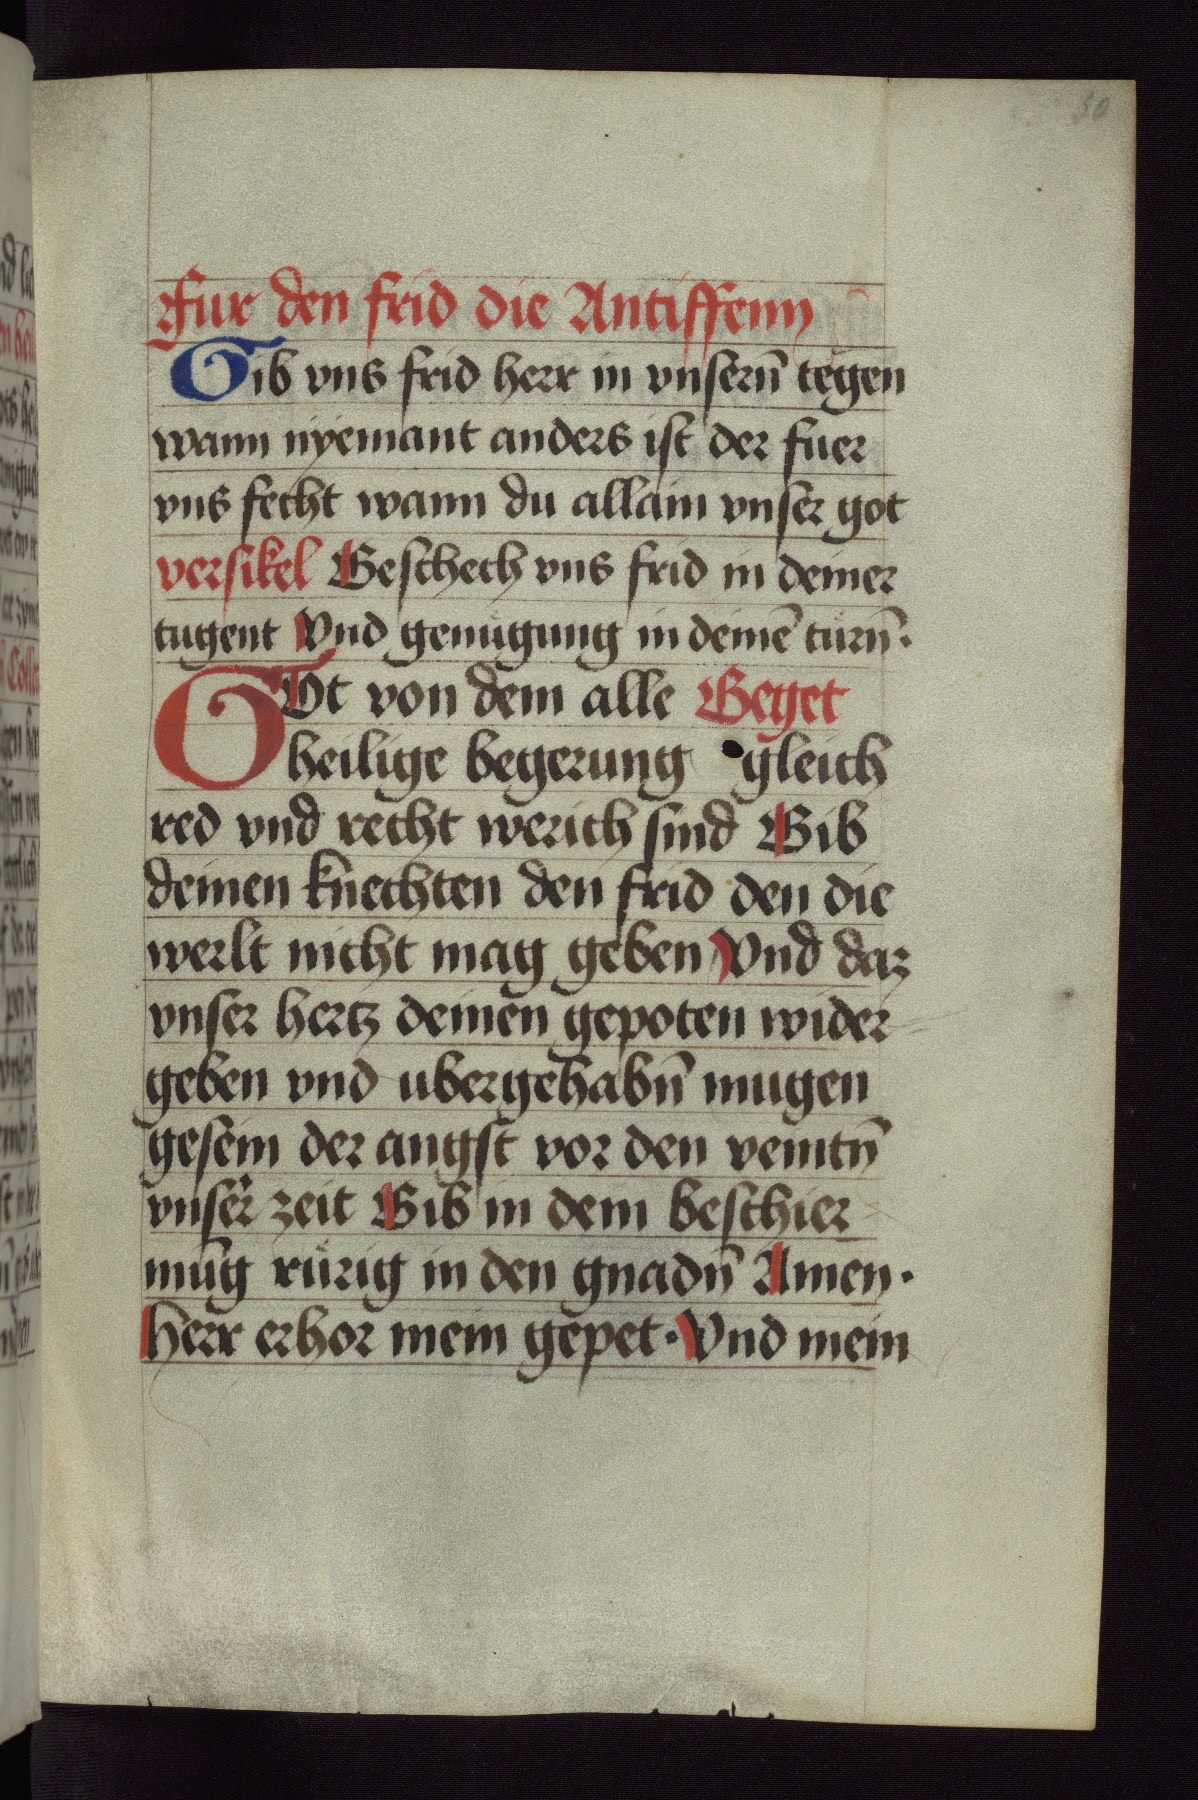 30
Fur den frid die Antiffenn
Gib vns frid herr in vnsern̄ tegen
wann nyemant anders ist der fuer
vns fecht wann du allain vnser got
versikel Geschech vns frid in deiner
tugent Vnd genugung in deinē turn̄.
GOt von dem alle Geget
heilige begerung gleich
red vnd recht werich sind Gib
deinen knechten den frid den die
werlt nicht mag geben Vnd daz
vnser hertz deinen gepoten wider
geben vnd ubergehabn̄ mugen
gesein der angst vor den veintn̄
vnser zeit Gib in dem beschier
mūg rürig in den gnadn̄ Amen.
Herr erhor mein gepet. Vnd mein